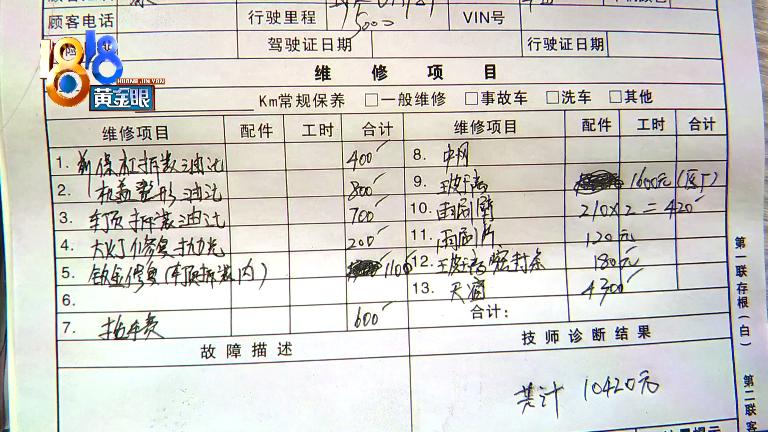 顾客电话 行驶里程 15000 VIN号
驾驶证日期 行驶证日期
1818
HUANG JIN YAN
黄金眼
维修项目
Km常规保养 □一般维修 □事故车 □洗车 □其他
维修项目 配件 工时 合计 维修项目 配件 工时 合计
1. 前保杠拆装油漆 400 8. 中网
2. 机盖整形油漆 800 9. 玻璃 1600元(原厂)
3. 车顶拆装油漆 700 10. 雨刮臂 210×2=420
4. 大灯修复抛光 200 11. 雨刮片 120元
5. 钣金修复(车顶拆装内) 1100 12. 玻璃密封条 180元
6. 13. 天窗 4300
7. 拖车费 600 合计:
故障描述 技师诊断结果
共计 10420元
第一联存根(白)
第二联客